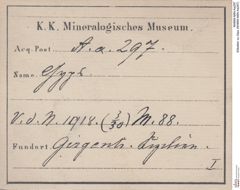 K. K. Mineralogisches Museum.
Acq. Post A. a. 297.
Name Gyps
V. d. N. 1914. (3/30) M. 88.
Fundort Girgenti. Sizilien.
I